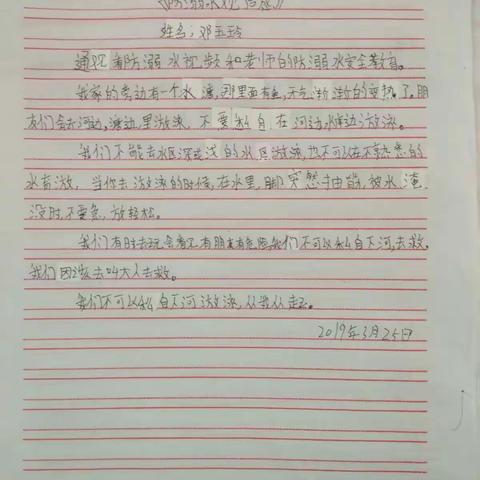 《防溺水观后感》
姓名：邓玉玲
通观看防溺水视频和老师的防溺水安全教育。
我家的旁边有一个水塘，那里面有鱼，天气渐渐的变热了。朋
友们会去河边，塘边里游泳，不要私自在河边塘边游泳。
我们不能去水区深或浅的水区游泳，也不可以在不熟悉的
水育游，当你去游泳的时候，在水里，脚突然抽筋，被水淹
没时，不要急，放轻松。
我们有时去玩，会看见有朋友有危险我们不可以私自下河，去救。
我们因该去叫大人去救。
我们不可以私自下河游泳，从我从起。
2019年3月25日